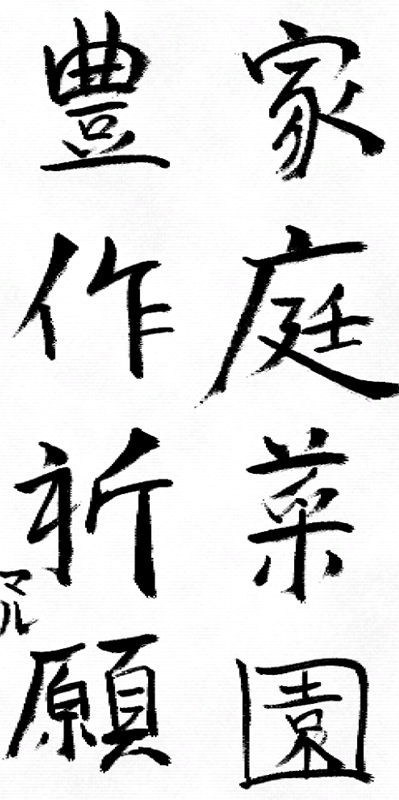 家庭菜園
豊作祈願
マル